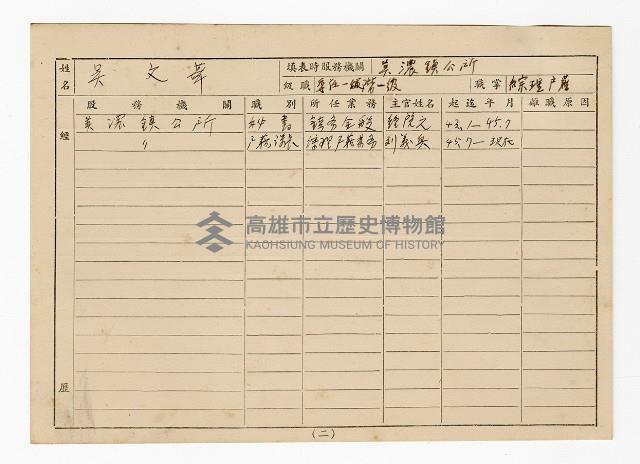 姓名 吳文華 填表時服務機關 美濃鎮公所
級職 委任一級第一級 職掌 綜理戶籍
服務機關 職別 所任業務 主官姓名 起迄年月 離職原因
美濃鎮公所 秘書 鎮務全般 鍾 元 43.1—45.7
〃 戶籍課長 綜理戶籍業務 劉義興 45.7—現在
經歷
高雄市立歷史博物館
KAOHSIUNG MUSEUM OF HISTORY
(二)